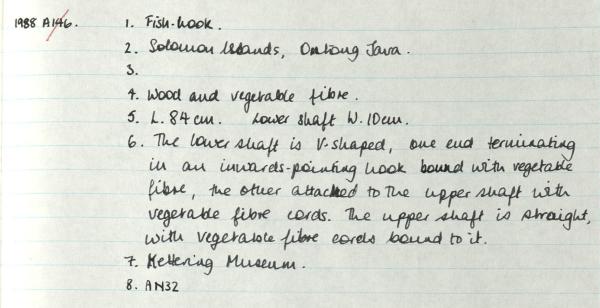 1988 A146. 1. Fish-hook.
2. Solomon Islands, Ontong Java.
3.
4. Wood and vegetable fibre.
5. L. 84cm. Lower shaft W. 10cm.
6. The lower shaft is V-shaped, one end terminating
in an inwards-pointing hook bound with vegetable
fibre, the other attached to the upper shaft with
vegetable fibre cords. The upper shaft is straight,
with vegetable fibre cords bound to it.
7. Kettering Museum.
8. AN32